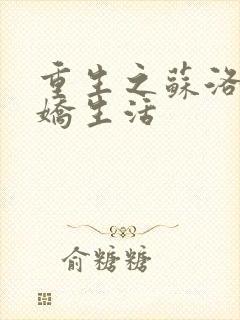 重生之蘇洛
嬌生活
俞糖糖